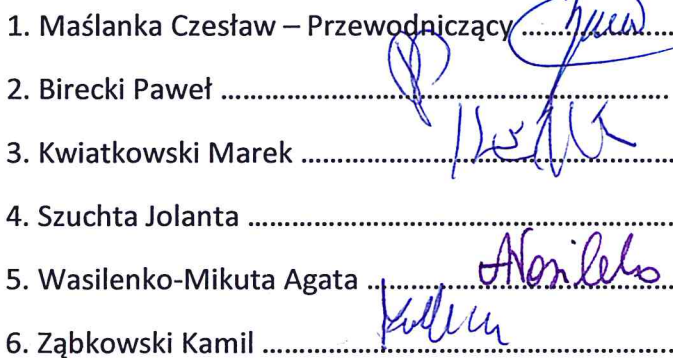 1. Maślanka Czesław – Przewodniczący ............................
2. Birecki Paweł ..............................................................
3. Kwiatkowski Marek ....................................................
4. Szuchta Jolanta ...........................................................
5. Wasilenko-Mikuta Agata ............................................
6. Ząbkowski Kamil .........................................................